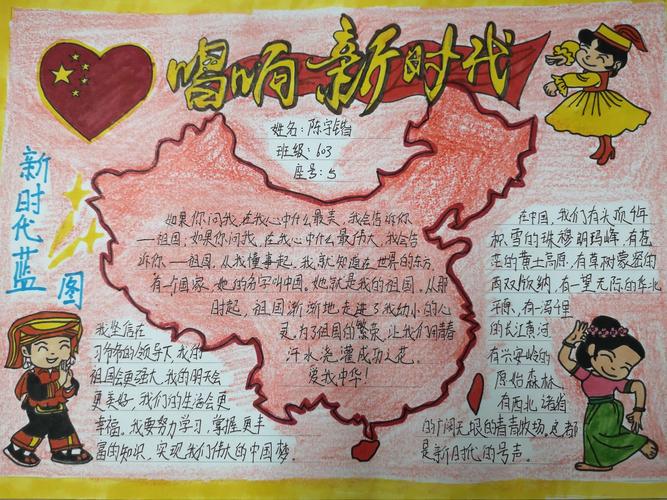 唱响新时代
姓名：陈宇锴
班级：603
座号：5
新时代蓝图
如果你问我，在我心中什么最美，我会告诉你
——祖国；如果你问我，在我心中什么最伟大，我会告
诉你——祖国。从我懂事起，我就知道在世界的东方
有一个国家，她的名字叫中国，她就是我的祖国。从那
时起，祖国渐渐地走进了我幼小的心
灵。为了祖国的繁荣，让我们用青春
汗水浇灌成功之花。
爱我中华！
我坚信在
习爷爷的领导下，我的
祖国会更强大，我的明天会
更美好，我们的生活会更
幸福。我要努力学习，掌握更丰
富的知识，实现我们伟大的中国梦。
在中国，我们有头顶千年
积雪的珠穆朗玛峰，有苍
茫的黄土高原，有草树蒙密的
西双版纳，有一望无际的华北
平原，有一泻千里
的长江黄河
有兴安岭的
原始森林
有西北诸省
的广阔无垠的春青牧场。这都
是新时代的号声。